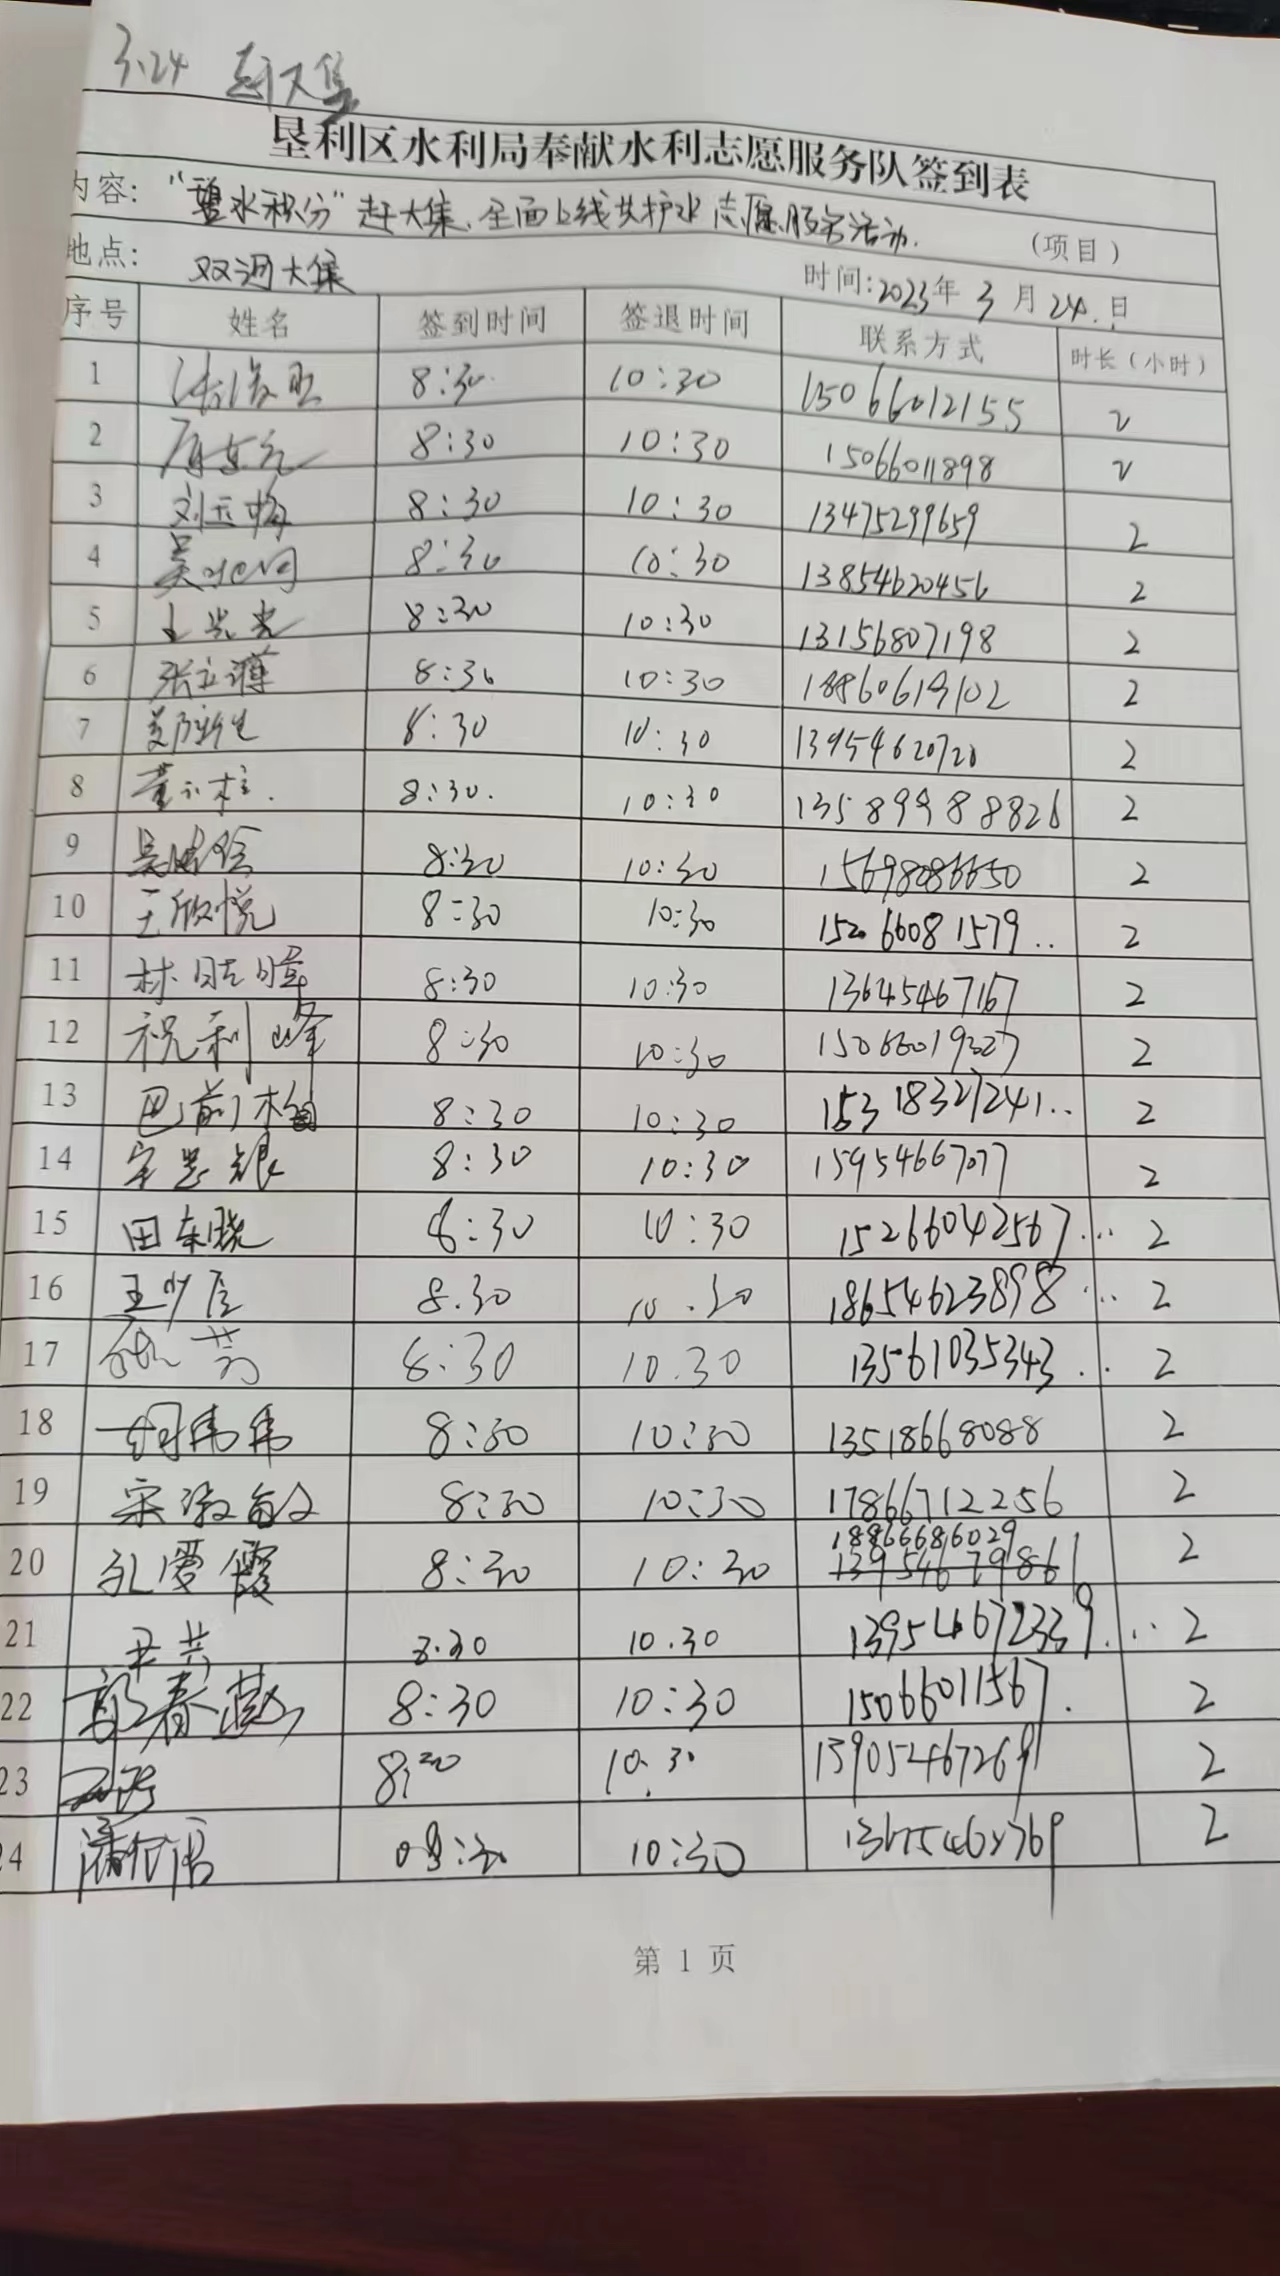 3.24 赶大集
垦利区水利局奉献水利志愿服务队签到表
内容: "垦水积分"赶大集、全面上线共护水志愿服务活动. (项目)
地点: 双河大集 时间:2023年3月24.日
序号 姓名 签到时间 签退时间 联系方式 时长(小时)
1 8:30. 10:30 15066012155 2
2 8:30 10:30 15066011898 2
3 刘玉梅 8:30 10:30 13475299659 2
4 吴 8:30 10:30 13854620456 2
5 王 8:30 10:30 13156807198 2
6 张立 8:30 10:30 18860619102 2
7 8:30 10:30 13954620720 2
8 董 8:30. 10:30 13589988826 2
9 吴 8:30 10:30 15698086650 2
10 王欣悦 8:30 10:30 152066081579.. 2
11 林 8:30 10:30 13645467167 2
12 祝利峰 8:30 10:30 15066019327 2
13 巴前 8:30 10:30 15318327241.. 2
14 8:30 10:30 15954667077 2
15 田东晓 8:30 10:30 15266042567... 2
16 王少 8.30 10.30 18654623898... 2
17 芳 8:30 10.30 13561035343.. 2
18 胡伟伟 8:30 10:30 13518668088 2
19 宋 敏 8:30 10:30 17866712256 2
20 孔爱霞 8:30 10:30 18866686029 2
13954679861
21 尹芳 8.30 10.30 13954672339... 2
22 郭春燕 8:30 10:30 15066011567. 2
23 8:30 10.30 13905467269 2
24 潘 08:30 10:30 2
第 1 页